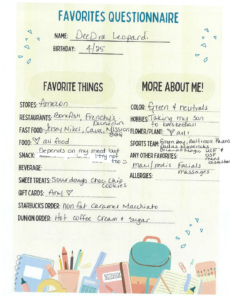 FAVORITES QUESTIONNAIRE
NAME: DeeDra Leopard
BIRTHDAY: 4/25
FAVORITE THINGS
STORES: Amazon
RESTAURANTS: Bonefish, Frenchy's
Dunedin
FAST FOOD: Jersey Mikes, Cava, Mission
FOOD: ♡ all food
SNACK: Depends on my mood but
try not
too
BEVERAGE:
SWEET TREATS: Sourdough Choc Chip
cookies
GIFT CARDS: Any ♡
STARBUCKS ORDER: non fat Caramel Machiato
DUNKIN ORDER: Hot coffee Cream + Sugar
MORE ABOUT ME!
COLOR: Green & neutrals
HOBBIES: Taking my son
to
FLOWER/PLANT: ♡ all!
SPORTS TEAM: Green Bay, Baltimore Ravens
ANY OTHER FAVORITES:
mani/pedis Facials
massages
ALLERGIES: